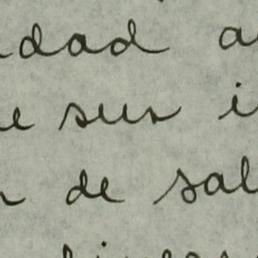 dad a
e sus i
de sal